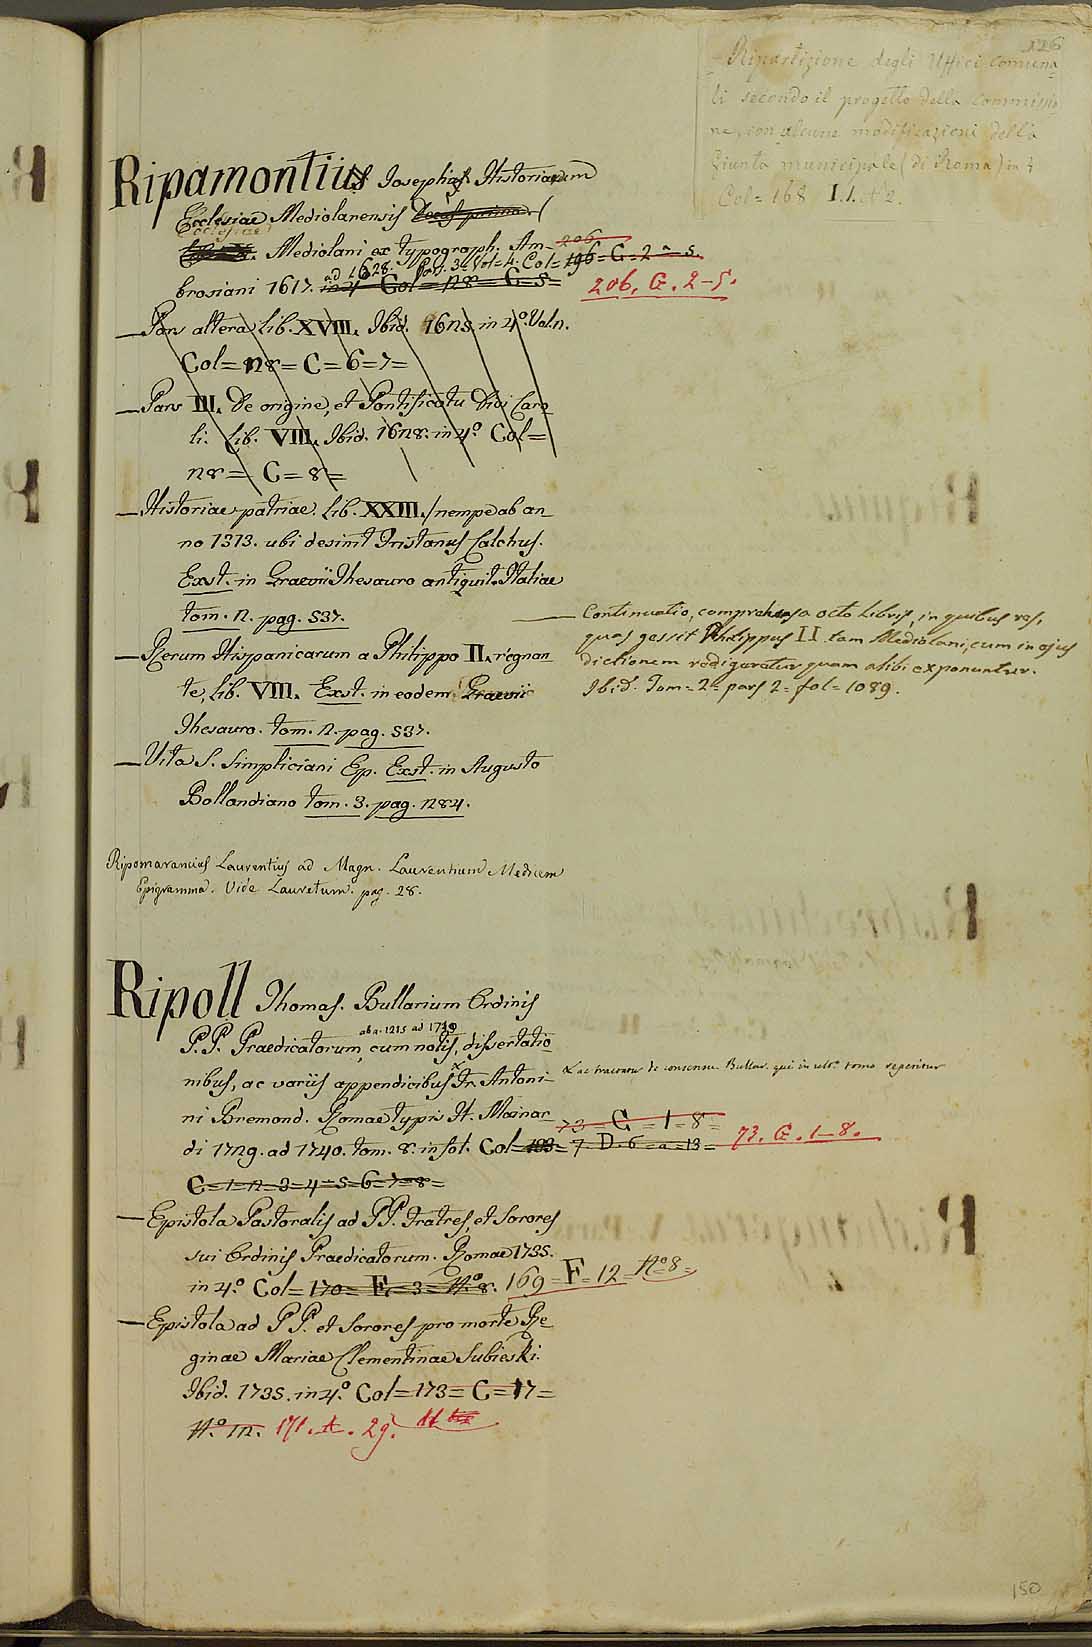 126
- Ripartizione degli Uffici comuna
li secondo il progetto della commissio
ne, con alcune modificazioni della
Giunta municipale (di Roma) in 4
Col = 168 I. 1. N° 2.
Ripamontius Josephus. Historiarum
Ecclesiae Mediolanensis
Ecclesiae
Mediolani ex typograph. Am-
brosiani 1617. ad 1628. Par. 3 = Vol = 4. Col = 196 = G = 2 a 5.
206
in 4° Col = 128 = C = 5 =
206. G. 2-5.
— Pars altera Lib. XVIII. Ibid. 1628 in 4° Vol. 2.
Col = 128 = C = 6 = 7 =
— Pars III. De origine, et Pontificatu Divi Caro
li. Lib. VIII. Ibid. 1628. in 4° Col =
128 = C = 8 =
— Historiae patriae. Lib. XXIII. / nempe ab an
no 1313. ubi desinit Tristanus Calchus.
Exst. in Graevii Thesauro antiquit. Italiae
tom. 2. pag. 537.
— Continuatio, comprehensa octo libris, in quibus res,
quas gessit Philippus II tam Mediolani, cum in ejus
dictionem redigeretur quam alibi exponuntur.
Ibid. Tom = 2° pars 2 = fol = 1089.
— Rerum Hispanicarum a Philippo II. regnan
te, Lib. VIII. Exst. in eodem Graevii
Thesauro. tom. 2. pag. 537.
— Vita S. Simpliciani Ep. Exst. in Augusto
Bollandiano tom. 3. pag. 284.
Ripomarancius Laurentius ad Magn. Laurentium Medicem
Epigramma. Vide Lauretum. pag. 28.
Ripoll Thomas. Bullarium Ordinis
ab a. 1215 ad 1739
P.P. Praedicatorum, cum notis, dissertatio
nibus, ac variis appendicibus x Fr. Antoni-
x ac tractatu de consensu Bullar. qui in ult° tomo reperitur
ni Bremond. Romae typis H. Mainar
73 = G = 1 = 8 =
di 1729. ad 1740. tom. 8. in fol. Col = 103 = 7. D. 6 = a = 13 = 73. G. 1-8.
C = 1 = 2 = 3 = 4 = 5 = 6 = 7 = 8 =
— Epistola Pastoralis ad PP. Fratres, et Sorores
sui Ordinis Praedicatorum. Romae 1735.
in 4° Col = 170 = E = 3 = N° 8. 169 = F = 12 = N° 8 =
— Epistola ad PP. et Sorores pro morte Re
ginae Mariae Clementinae Subieski.
Ibid. 1735. in 4° Col = 173 = C = 17 =
N° 12. 171. A. 29.
150